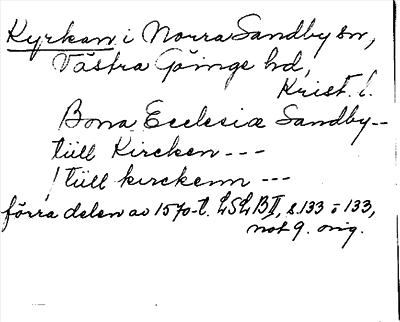 Kyrkan i Norra Sandby sn,
Västra Göinge hd,
Krist. l.
Bona Ecclesiæ Sandby --
tiill Kircken ---
! tiill kirckenn ---
förra delen av 1570-t. LSLB II, s. 133 o 133,
not 9. orig.